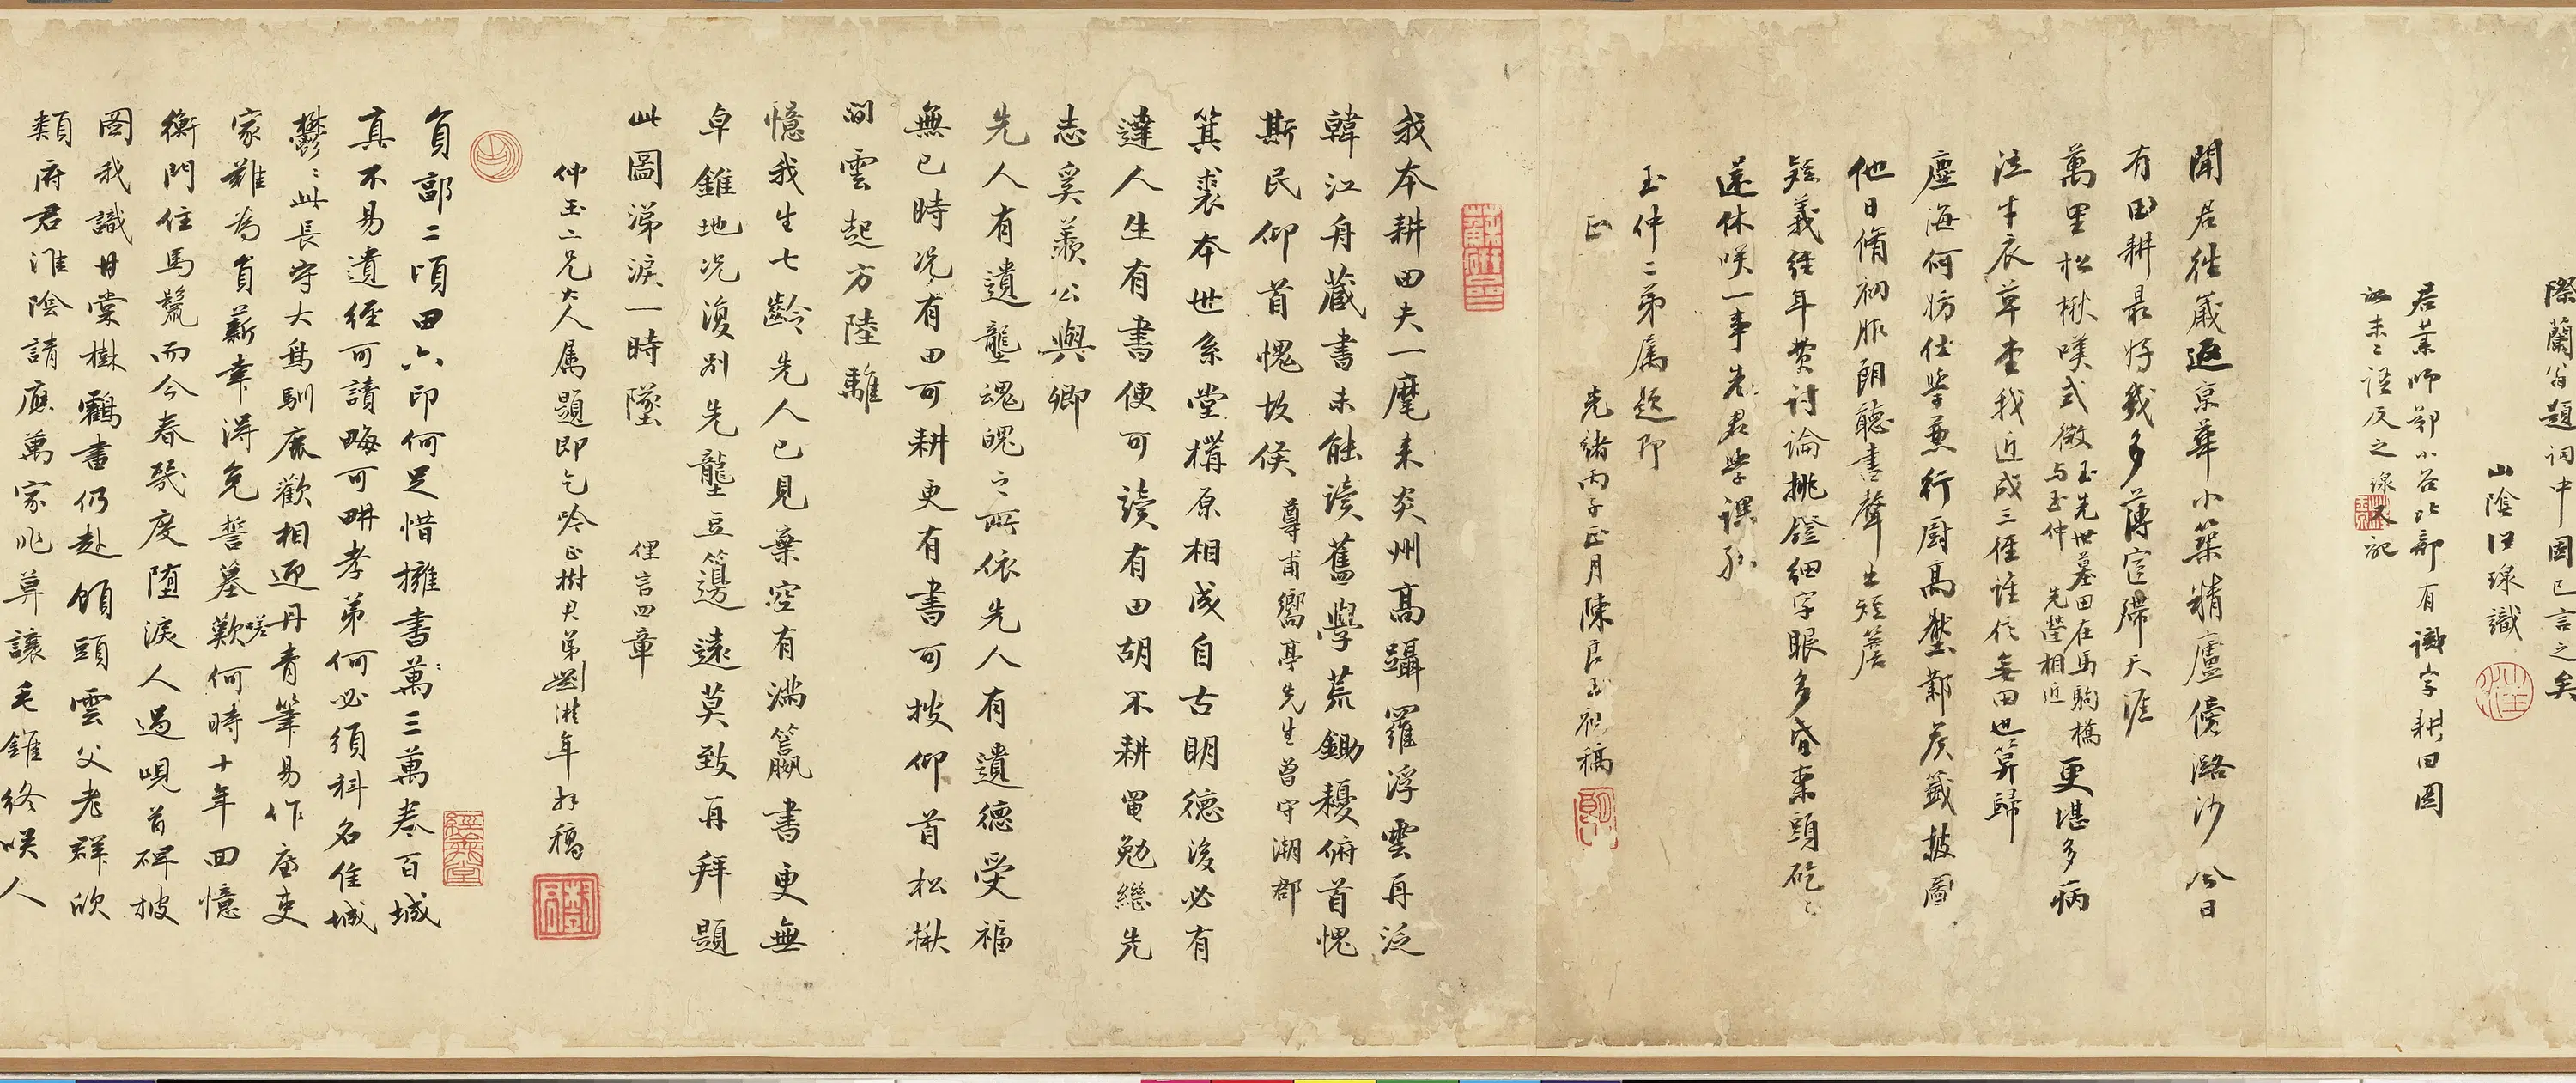 際蘭翁題詞中固已言之矣
山陰汪瑔識
君業師鄭小谷比部有識字耕田圖
故末二語及之 瑔又記
聞君往歲返京華小築精廬傍潞沙 今日
有田耕最好 我多薄宦滯天涯
萬里松楸嘆式微 玉先世墓田在馬駒橋
与玉仲先塋相近 更堪多病
泣牛衣草堂我近成三徑誰信無田也算歸
塵海何妨仕學兼行廚馬埶鄴矦籤披圖
他日脩初服朗聽書聲出短簷
疑義經年費討論挑鐙細字眼多昏棗頭矻矻
遂休咲一事先君學課孫
玉仲二弟属題即
正
光緒丙子正月陳良玉初稿
我本耕田夫一麾来炎州高躡羅浮雲再泛
韓江舟藏書未能读舊學荒鋤耰俯首愧
斯民仰首愧故侯 尊甫嚮亭先生曾守潮郡
箕裘本世系堂構原相成自古明德後必有
達人生有書便可读有田胡不耕黽勉繼先
志奚羨公與卿
先人有遺壟魂魄之所依先人有遺德受福
無已時况有田可耕更有書可披仰首松楸
間雲起方陸離
憶我生七齡先人已見棄空有滿籯書更無
卓錐地况復别先壟豆籩遠莫致再拜題
此圖涕淚一時墜 俚言四章
仲玉二兄大人属題即乞吟正樹君弟劉溎年拜稿
負郭二頃田六印何足惜擁書萬三萬卷百城
真不易遺經可讀畝可畊孝弟何必須科名佳城
鬱鬱此長守大鳥馴鹿歡相迎丹青筆易作廬吏
家難為負薪幸得免誓墓歎嗟何時十年回憶
衡門住馬鬣而今春幾度墮淚人過峴首碑披
圖我識甘棠樹霱書仍赴傾頭雲父老群欣
類府君淮陰請應萬家兆莫讓毛錐終咲人